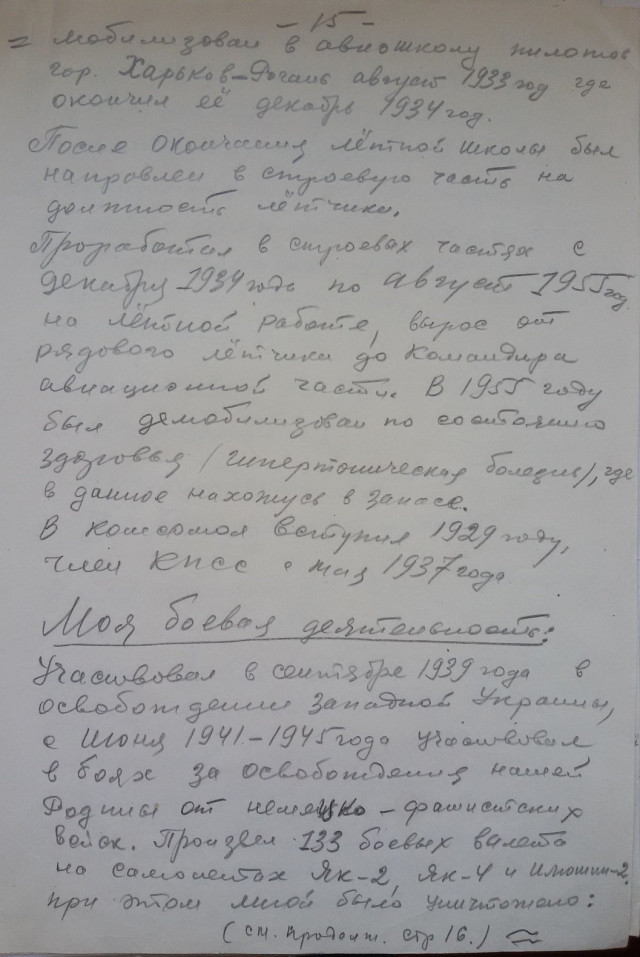 - 15 -
= мобилизован в авиошколу пилотов
гор. Харьков-Рогань август 1933 год где
окончил её декабрь 1934 год.
После окончания лётной школы был
направлен в строевую часть на
должность лётчика.
Проработал в строевых частях с
декабря 1934 года по август 1955 год.
на лётной работе, вырос от
рядового лётчика до командира
авиационной части. В 1955 году
был демобилизован по состоянию
здоровья /гипертоническая болезнь/, где
в данное нахожусь в запасе.
В комсомол вступил 1929 году,
член КПСС с мая 1937 года
Моя боевая деятельность:
Участвовал в сентябре 1939 года в
освобождении Западной Украины,
с июня 1941-1945 года участвовал
в боях за освобождения нашей
Родины от немецко-фашистских
войск. Произвел 133 боевых вылета
на самолетах Як-2, Як-4 и Илюшин-2.
при этом мной было уничтожено:
(см. продолж. стр 16.)